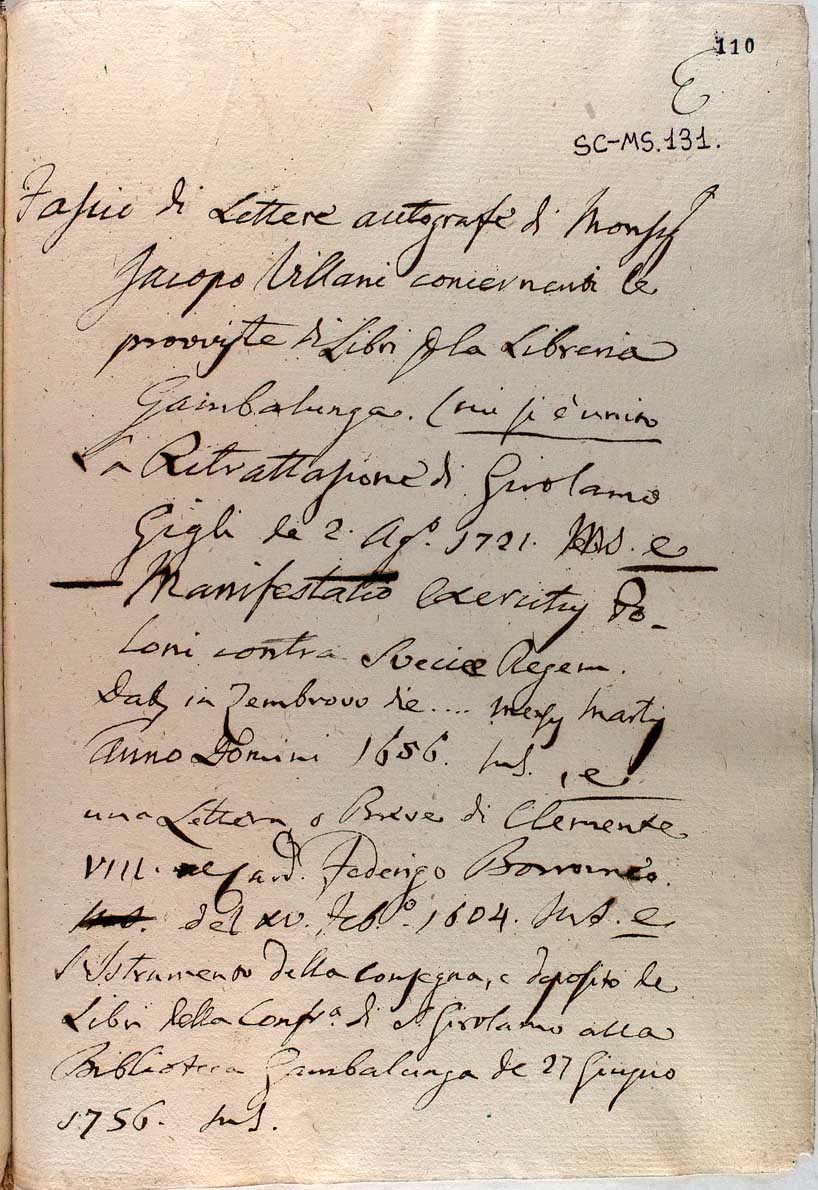 110
E
SC-MS.131.
Fascio di Lettere autografe di Monsig
Jacopo Villani concernenti le
provviste di Libri p la Libreria
Gambalunga. (cui si è unito
La Ritrattasione di Girolamo
Gigli de 2. Ago. 1721. MS. e
Manifestatio exercitus Po-
loni contra Sveciæ Regem.
Dat in Zembrovo die .... mensis Martij
Anno Domini 1656. ms. , e
una Lettera, o Breve di Clemente
VIII. al Card. Federigo Borromeo.
del XV. Feb.o 1604. MS. e
l'Istrumento della consegna, e deposito de
Libri della Confr.a di S. Girolamo alla
Biblioteca Gambalunga de 27 Giugno
1756. ms.